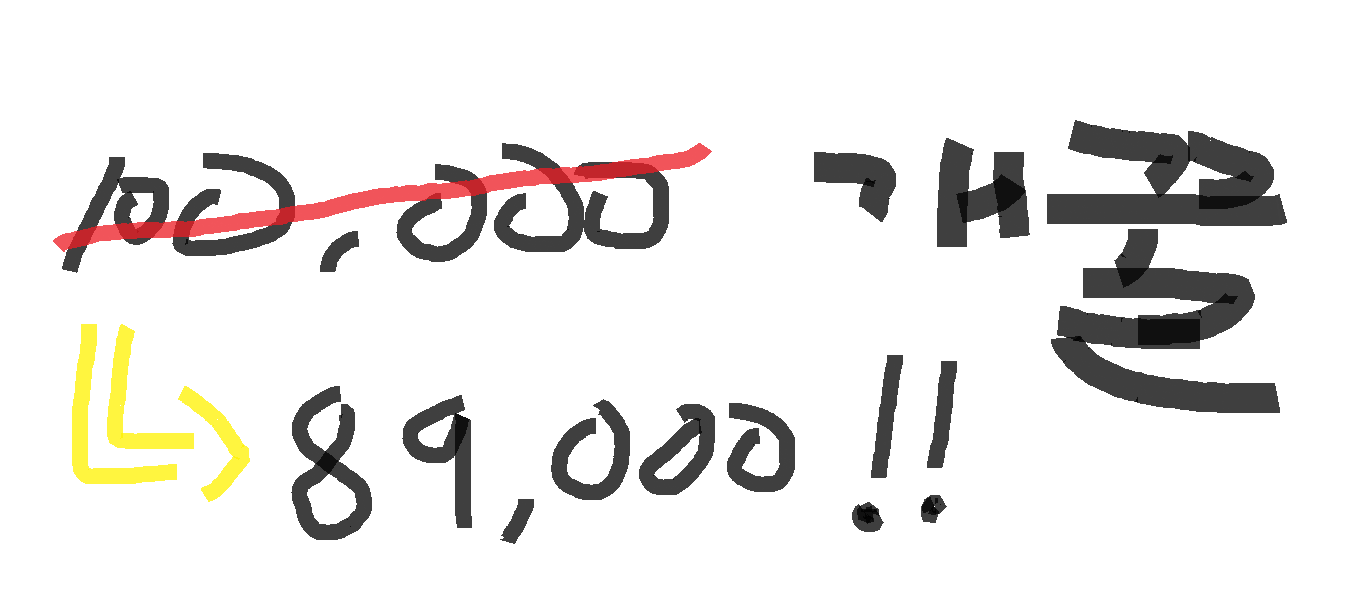 100,000 개꿀
89,000!!